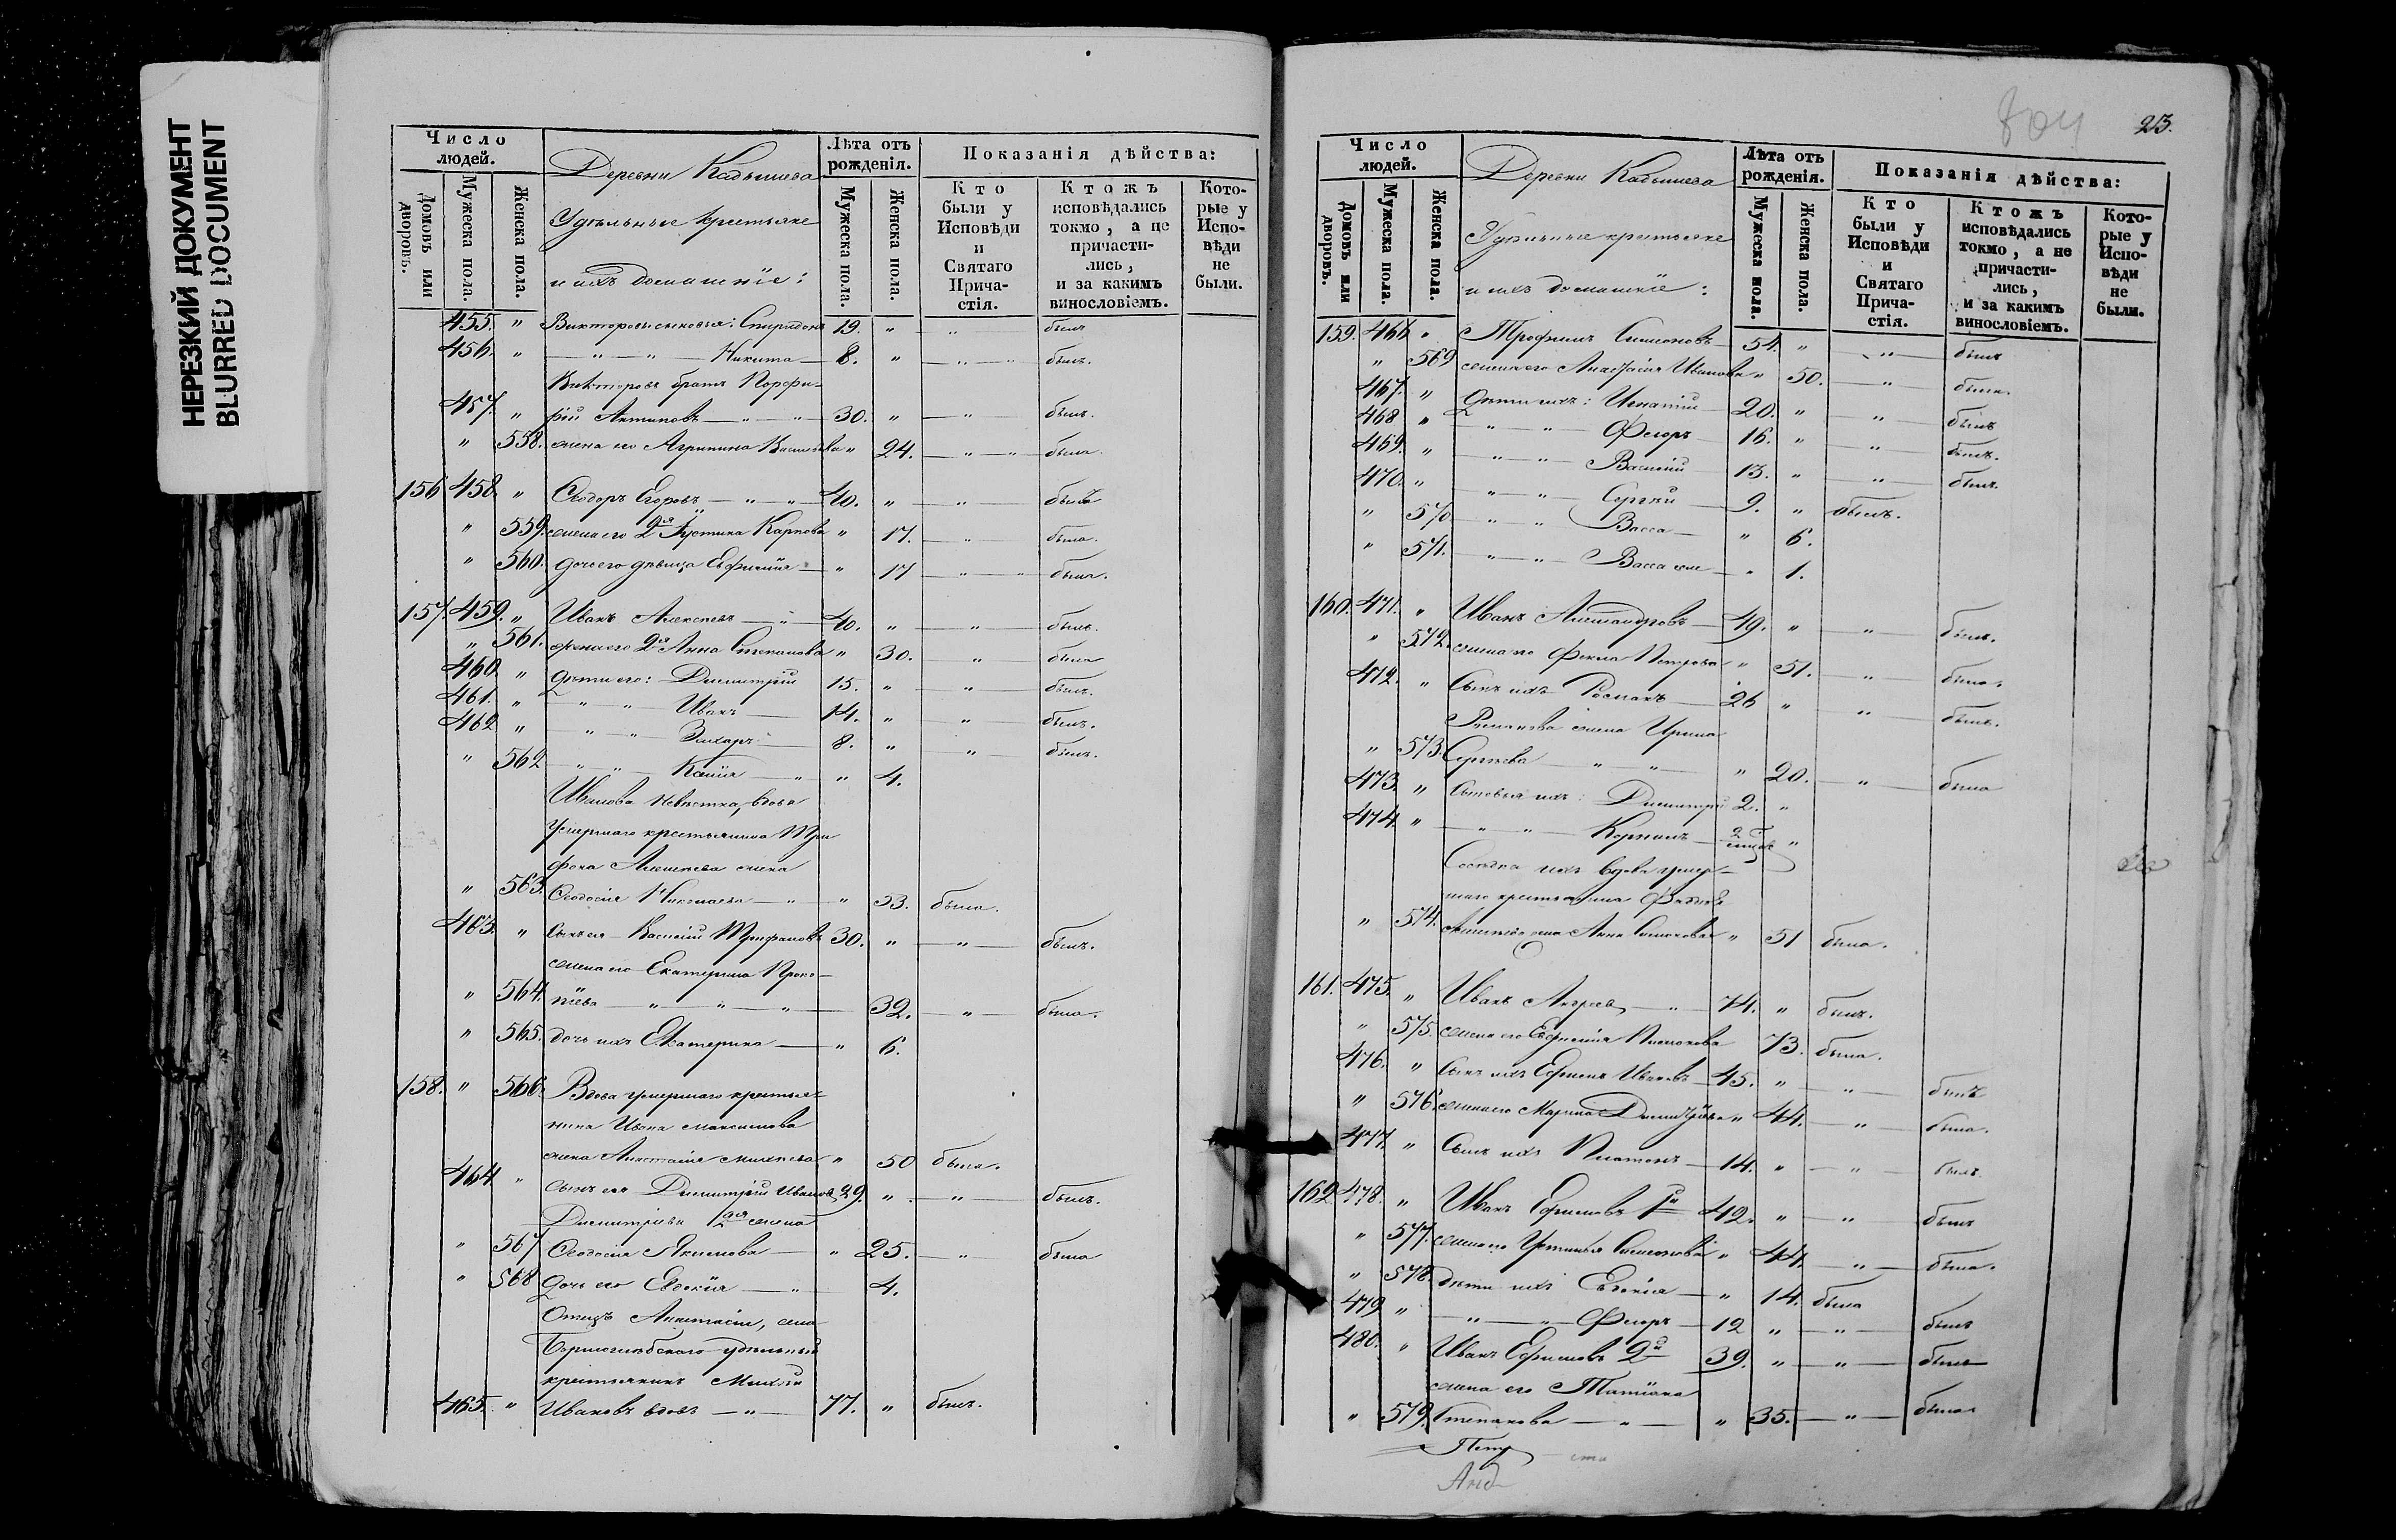 НЕРЕЗКИЙ ДОКУМЕНТ
BLURRED DOCUMENT
Число людей.
Домовъ или дворовъ.
Мужеска пола.
Женска пола.
Деревни Кадышева
Удѣльные крестьяне
и ихъ домашніе:
Лѣта отъ рожденія.
Мужеска пола.
Женска пола.
Показанія дѣйства:
Кто были у Исповѣди и Святаго Прича-стія.
Ктожъ исповѣдались токмо, а не причасти-лись, и за какимъ винословіемъ.
Кото-рые у Испо-вѣди не были.
455. " Викторовы сыновья: Спиридонъ 19. " " былъ
456. " " " Никита 8. " " " былъ.
Викторовъ братъ Порфи-
457. " рій Антиповъ " " 30. " " былъ.
" 558. жена его Агрипина Васильева " 24. " " была.
156 458 " Ѳеодоръ Егоровъ " " 40. " " былъ
" 559. жена его 2я Іустина Карпова " 17. " была.
" 560. дочь его дѣвица Евфимія " 17 " " была.
157. 459. " Иванъ Алексѣевъ " 40. " " былъ.
" 561. жена его 2я Анна Степанова " 30. " была
460 " дѣти его: Димитрій 15. " " былъ.
461. " " " Иванъ 14. " " былъ.
462 " " " Захаръ 8. " " былъ.
" 562 " " " " 4.
Иванова невѣстка, вдова
умершаго крестьянина Три
фона Алексѣева жена
" 563. Ѳеодосія Николаева " " 53. была.
463. " сынъ ея Василій Трифановъ 30. " " былъ.
жена его Екатерина Проко-
" 564. піева " " " 32. " была.
" 565. дочь ихъ Екатерина " 6.
158. " 566. Вдова умершаго крестья-
нина Ивана Максимова
жена Анастасія Михѣева " 50 была.
464 " сынъ ея Димитрій Ивановъ 29. " " былъ.
Димитрія 1ая жена
" 567 Ѳеодосія Якимова " 25. " была
" 568 дочь его Евдокія " 4.
Отецъ Анастасіи, села
удѣльный
крестьянинъ Михѣй
465. " Ивановъ вдовъ " 77. " былъ.
804
213.
Число людей.
Домовъ или дворовъ.
Мужеска пола.
Женска пола.
Деревни Кадышева
Удѣльные крестьяне
и ихъ домашніе:
Лѣта отъ рожденія.
Мужеска пола.
Женска пола.
Показанія дѣйства:
Кто были у Исповѣди и Святаго Прича-стія.
Ктожъ исповѣдались токмо, а не причасти-лись, и за какимъ винословіемъ.
Кото-рые у Испо-вѣди не были.
159. 466 " Трофимъ Симоновъ 54. " " былъ
" 569 жена его Анастасія Иванова " 50. " была.
467. " дѣти ихъ: Игнатій 20. " " былъ
468 " " " Ѳеодоръ 16. " " былъ.
469. " " " Василій 13. " " былъ.
470. " " " Сергѣй 9. " былъ.
" 570 " " Васса " 6.
" 571. " " Васса " 1.
160. 471. " Иванъ Александровъ 49. " " былъ.
" 572. жена его Фекла Петрова " 51. " была.
472. " сынъ ихъ Романъ 26 " " былъ.
Романова жена Ирина
" 573. Сергѣева " " " 20. " была
473. " сыновья ихъ: Димитрій 2. "
474. " " " Корнилъ 2 "
Сосѣдка ихъ вдова умер-
шаго крестьянина
" 574. жена Анна Симонова " 51 была.
161. 475. " Иванъ Андреевъ " 74. " былъ.
" 575. жена его Евфимія 73. была.
476. " сынъ ихъ Ефимъ Ивановъ 45. " " былъ
" 576. жена его Марина Димитріева " 44. " была.
477. " сынъ ихъ Платонъ 14. " " былъ.
162 478. " Иванъ Ефимовъ 1й 42. " " былъ
" 577. жена его Устинья Симонова " 44. " была.
" 578. дѣти ихъ Евдокія " 14. была
479 " " " Ѳеодоръ 12 " " былъ
480. " Иванъ Ефимовъ 2й 39. " " былъ
жена его Татіана
" 579. Степанова " " 35. " была